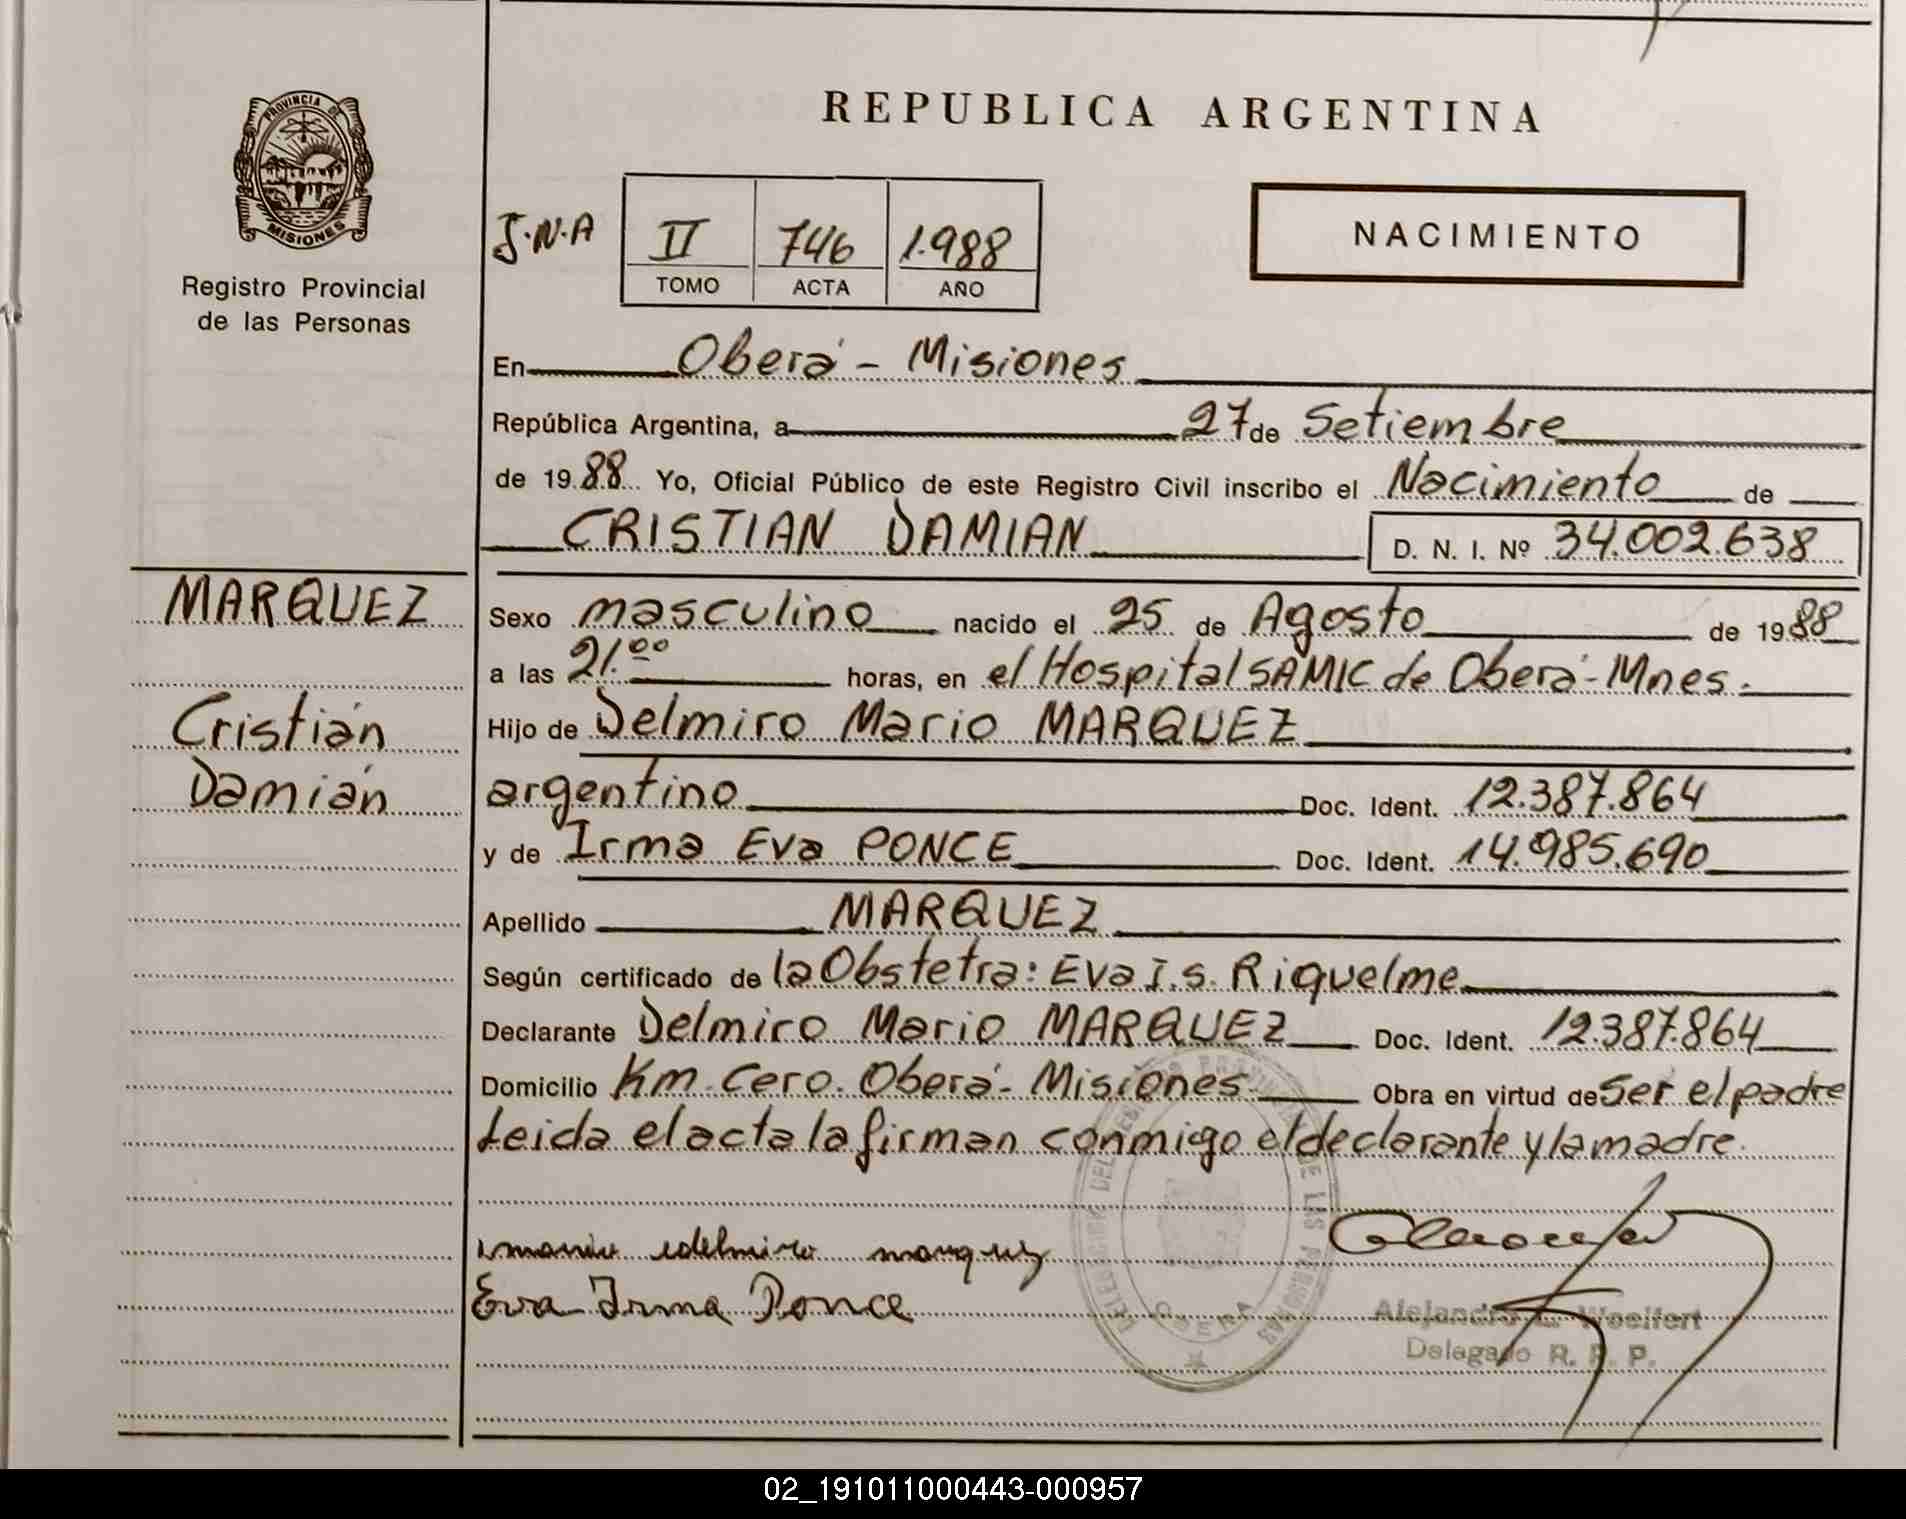 PROVINCIA DE
MISIONES
Registro Provincial
de las Personas
MARQUEZ
Cristián
Damián
REPUBLICA ARGENTINA
J.N.A II 746 1.988
TOMO ACTA AÑO
NACIMIENTO
En Oberá - Misiones
República Argentina, a 27 de Setiembre
de 19 88 Yo, Oficial Público de este Registro Civil inscribo el Nacimiento de
CRISTIAN DAMIAN D. N. I. Nº 34.002.638
Sexo masculino nacido el 25 de Agosto de 19 88
a las 21.00 horas, en el Hospital SAMIC de Oberá - Mnes.
Hijo de Delmiro Mario MARQUEZ
argentino Doc. Ident. 12.387.864
y de Irma Eva PONCE Doc. Ident. 14.985.690
Apellido MARQUEZ
Según certificado de la Obstetra: Eva I.S. Riquelme
Declarante Delmiro Mario MARQUEZ Doc. Ident. 12.387.864
Domicilio Km. Cero. Oberá - Misiones Obra en virtud de ser el padre
Leida el acta la firman conmigo el declarante y la madre.
marquez
Eva Irma Ponce
Woelfert
Delegado R. P. P.
DE LAS PERSONAS
OBERA
02_191011000443-000957